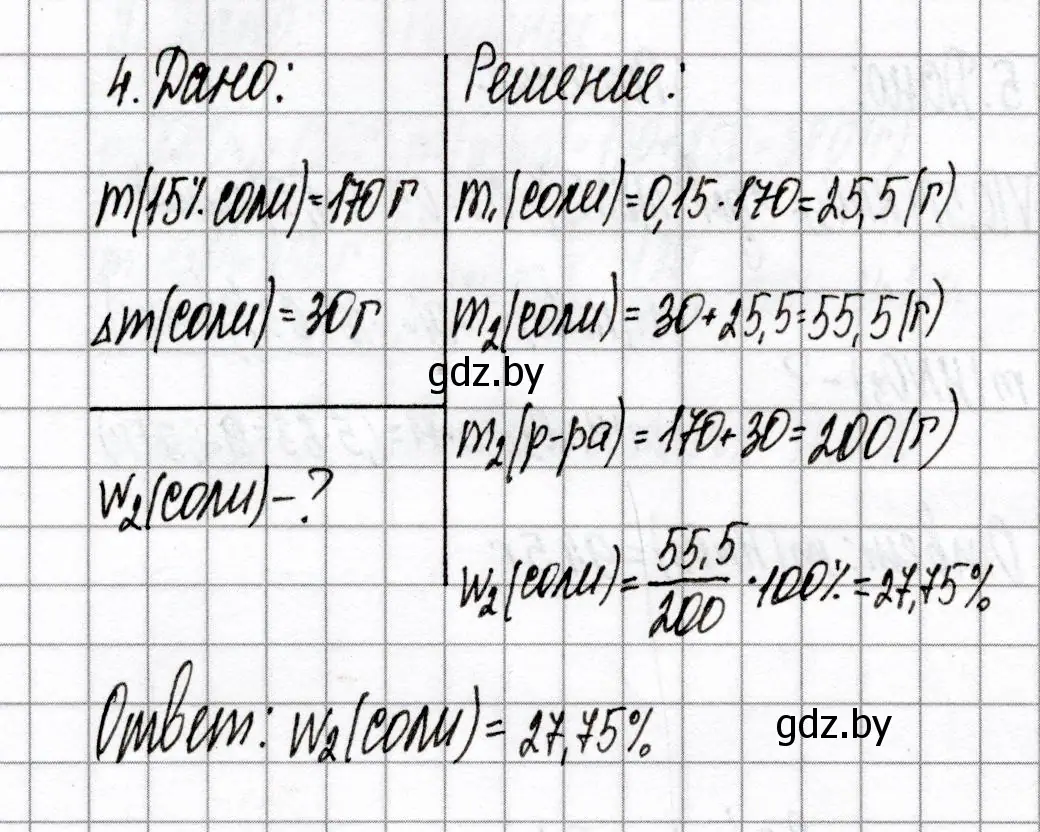 4. Дано:
m(15% соли)=170 г
Δm(соли)=30 г
w₂(соли)-?
Решение:
m₁(соли)=0,15·170=25,5(г)
m₂(соли)=30+25,5=55,5(г)
m₂(р-ра)=170+30=200(г)
w₂(соли)=55,5/200·100%=27,75%
Ответ: w₂(соли)=27,75%
gdz.by
gdz.by